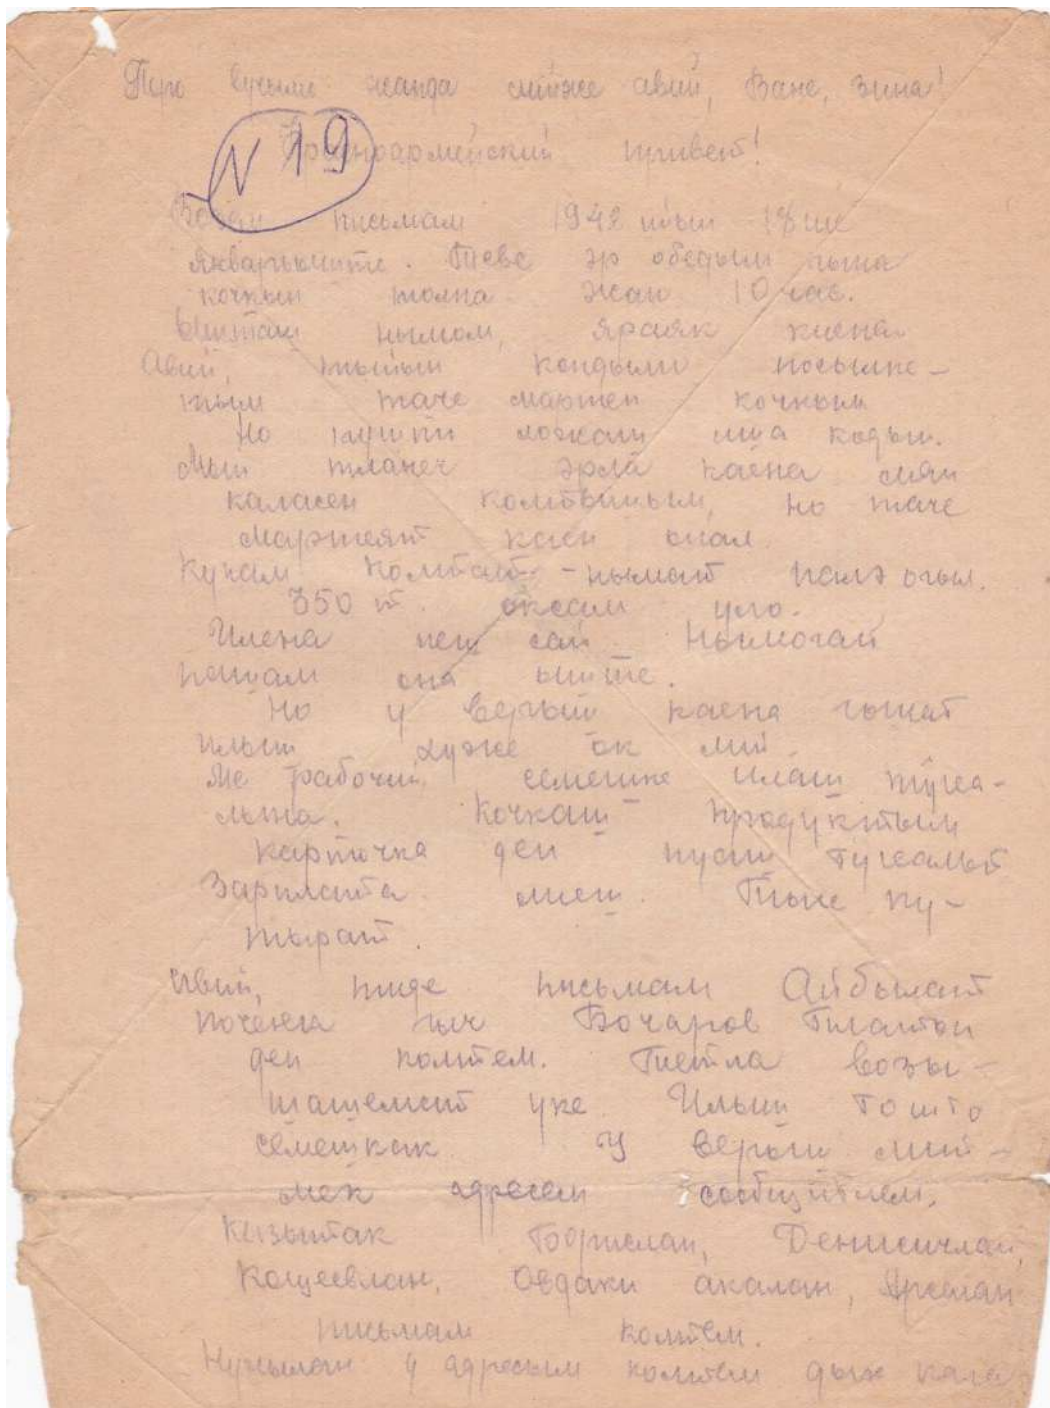 Поро кучыми жапда лийже авий, Ване, Зина!
N 19
Красноармейский привет!
Возем письмам 1942 ийын 18 ше
январьыште. Теве эр обедым гына
кочкын толна. Жап 10 час.
Ышташ нымом, яраяк киена
Авий, тыйын кондымо посылке-
тым таче мартен кочкым
Но ложаш ила кодын.
Мый тланеч эрла каена ман
каласен колтышым, но таче
мартеят каен онал.
Кунам колтат - нымат палэ огыл.
350 т. оксам уло.
Илена пеш сай. Нымогай
пашам она ыште.
Но у верыш каена гынат
илыш уже ок лий.
Ме рабочий семынже илаш тӱҥа-
лына. Кочкаш продуктым
карточка ден пуаш тӱҥалыт
Зарплата лиеш. Тыге ку-
тырат.
Авий, тиде письмам Айбылат
почеҥга гыч Бочаров Платон
ден колтем. Петла возы-
шашемат уке. Илыш тошто
семынжак. У верыш мий-
мек адресем сообщитлем.
Кызытак Денисичлан,
Кощеевлан, Овдаки акалан,
письмам колтем.
Нунылан у адресым колтем дых